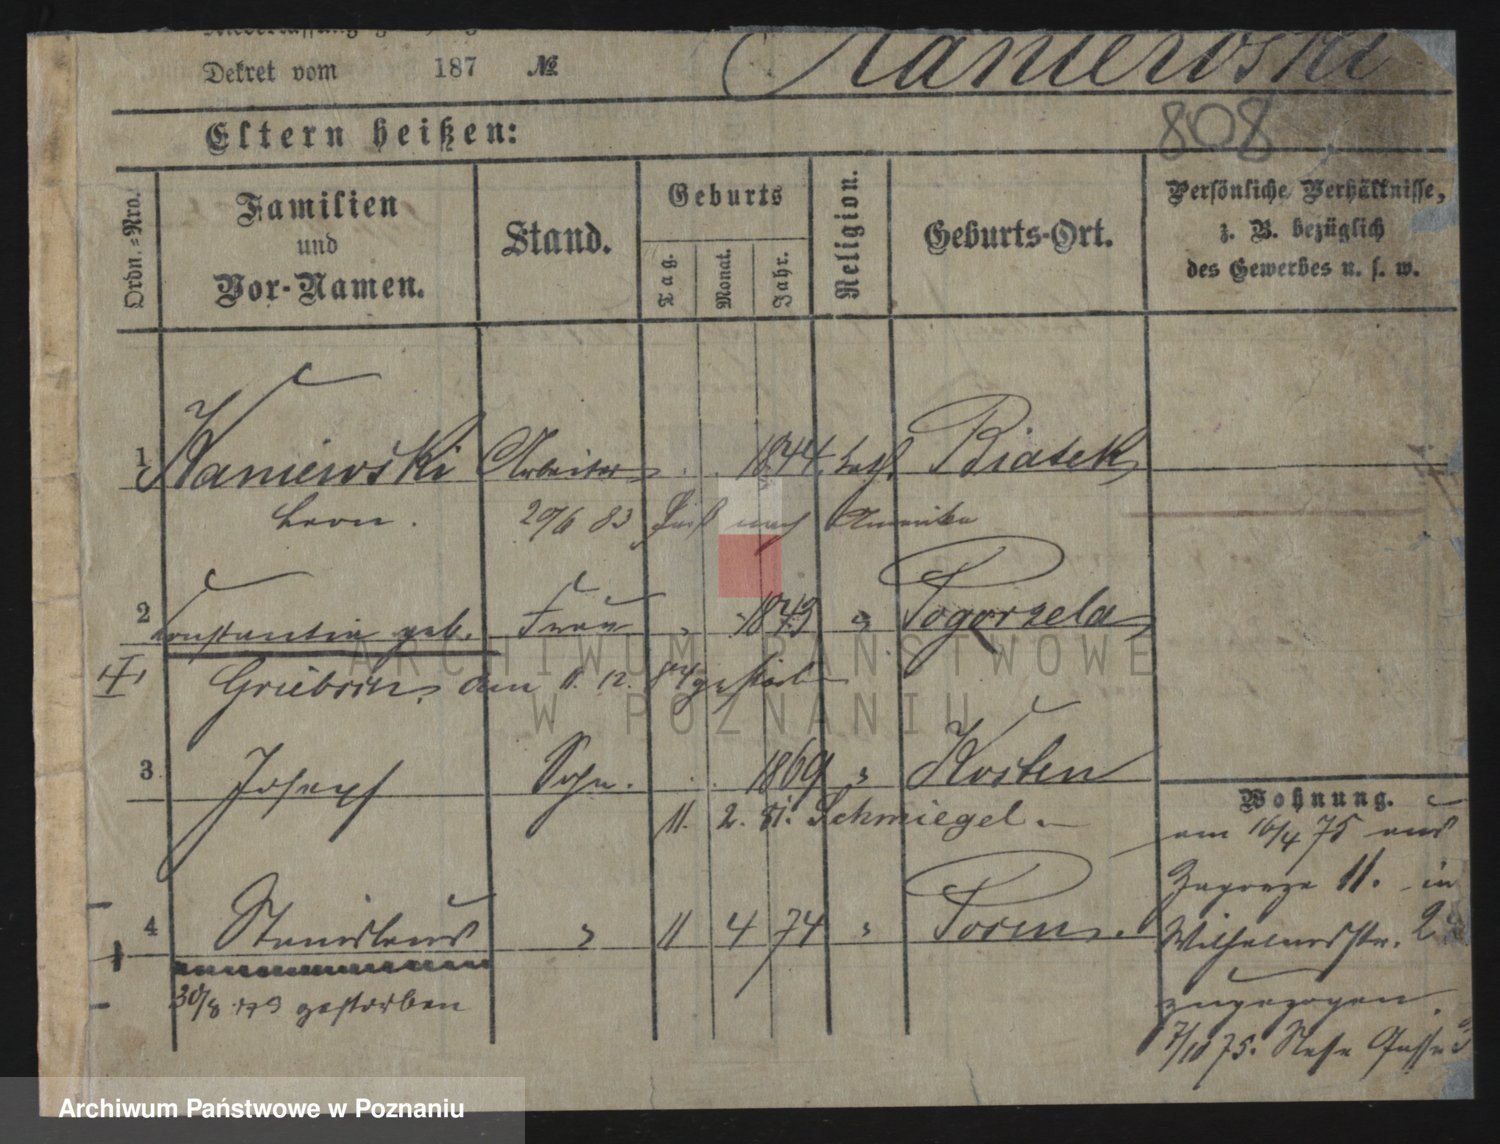 Dekret vom 187 №
Kaniewski
808
Eltern heißen:
Ordn.=Nro.
Familien
und
Vor-Namen.
Stand.
Geburts
Tag.
Monat.
Jahr.
Religion.
Geburts-Ort.
Persönliche Verhältnisse,
z. B. bezüglich
des Gewerbes u. s. w.
1 Kaniewski Arbeiter 1844 kath Biatek
Leon. 20/6 83 nach Amerika
2 Constantia geb. Frau 1843 " Pogorzela
am 11. 12. 84 gestorben
3 Joseph Sohn. 1869 " Kosten
11. 2. 51. Schmiegel
Wohnung.
am 16/4 75 aus
Zagorze 11. in
Wilhelmstr. 2
zugezogen.
7/10 75. Neue Gasse 3
4 Stanislaus " 11 4 74 " Posen.
30/8 gestorben
ARCHIWUM PAŃSTWOWE
W POZNANIU
Archiwum Państwowe w Poznaniu